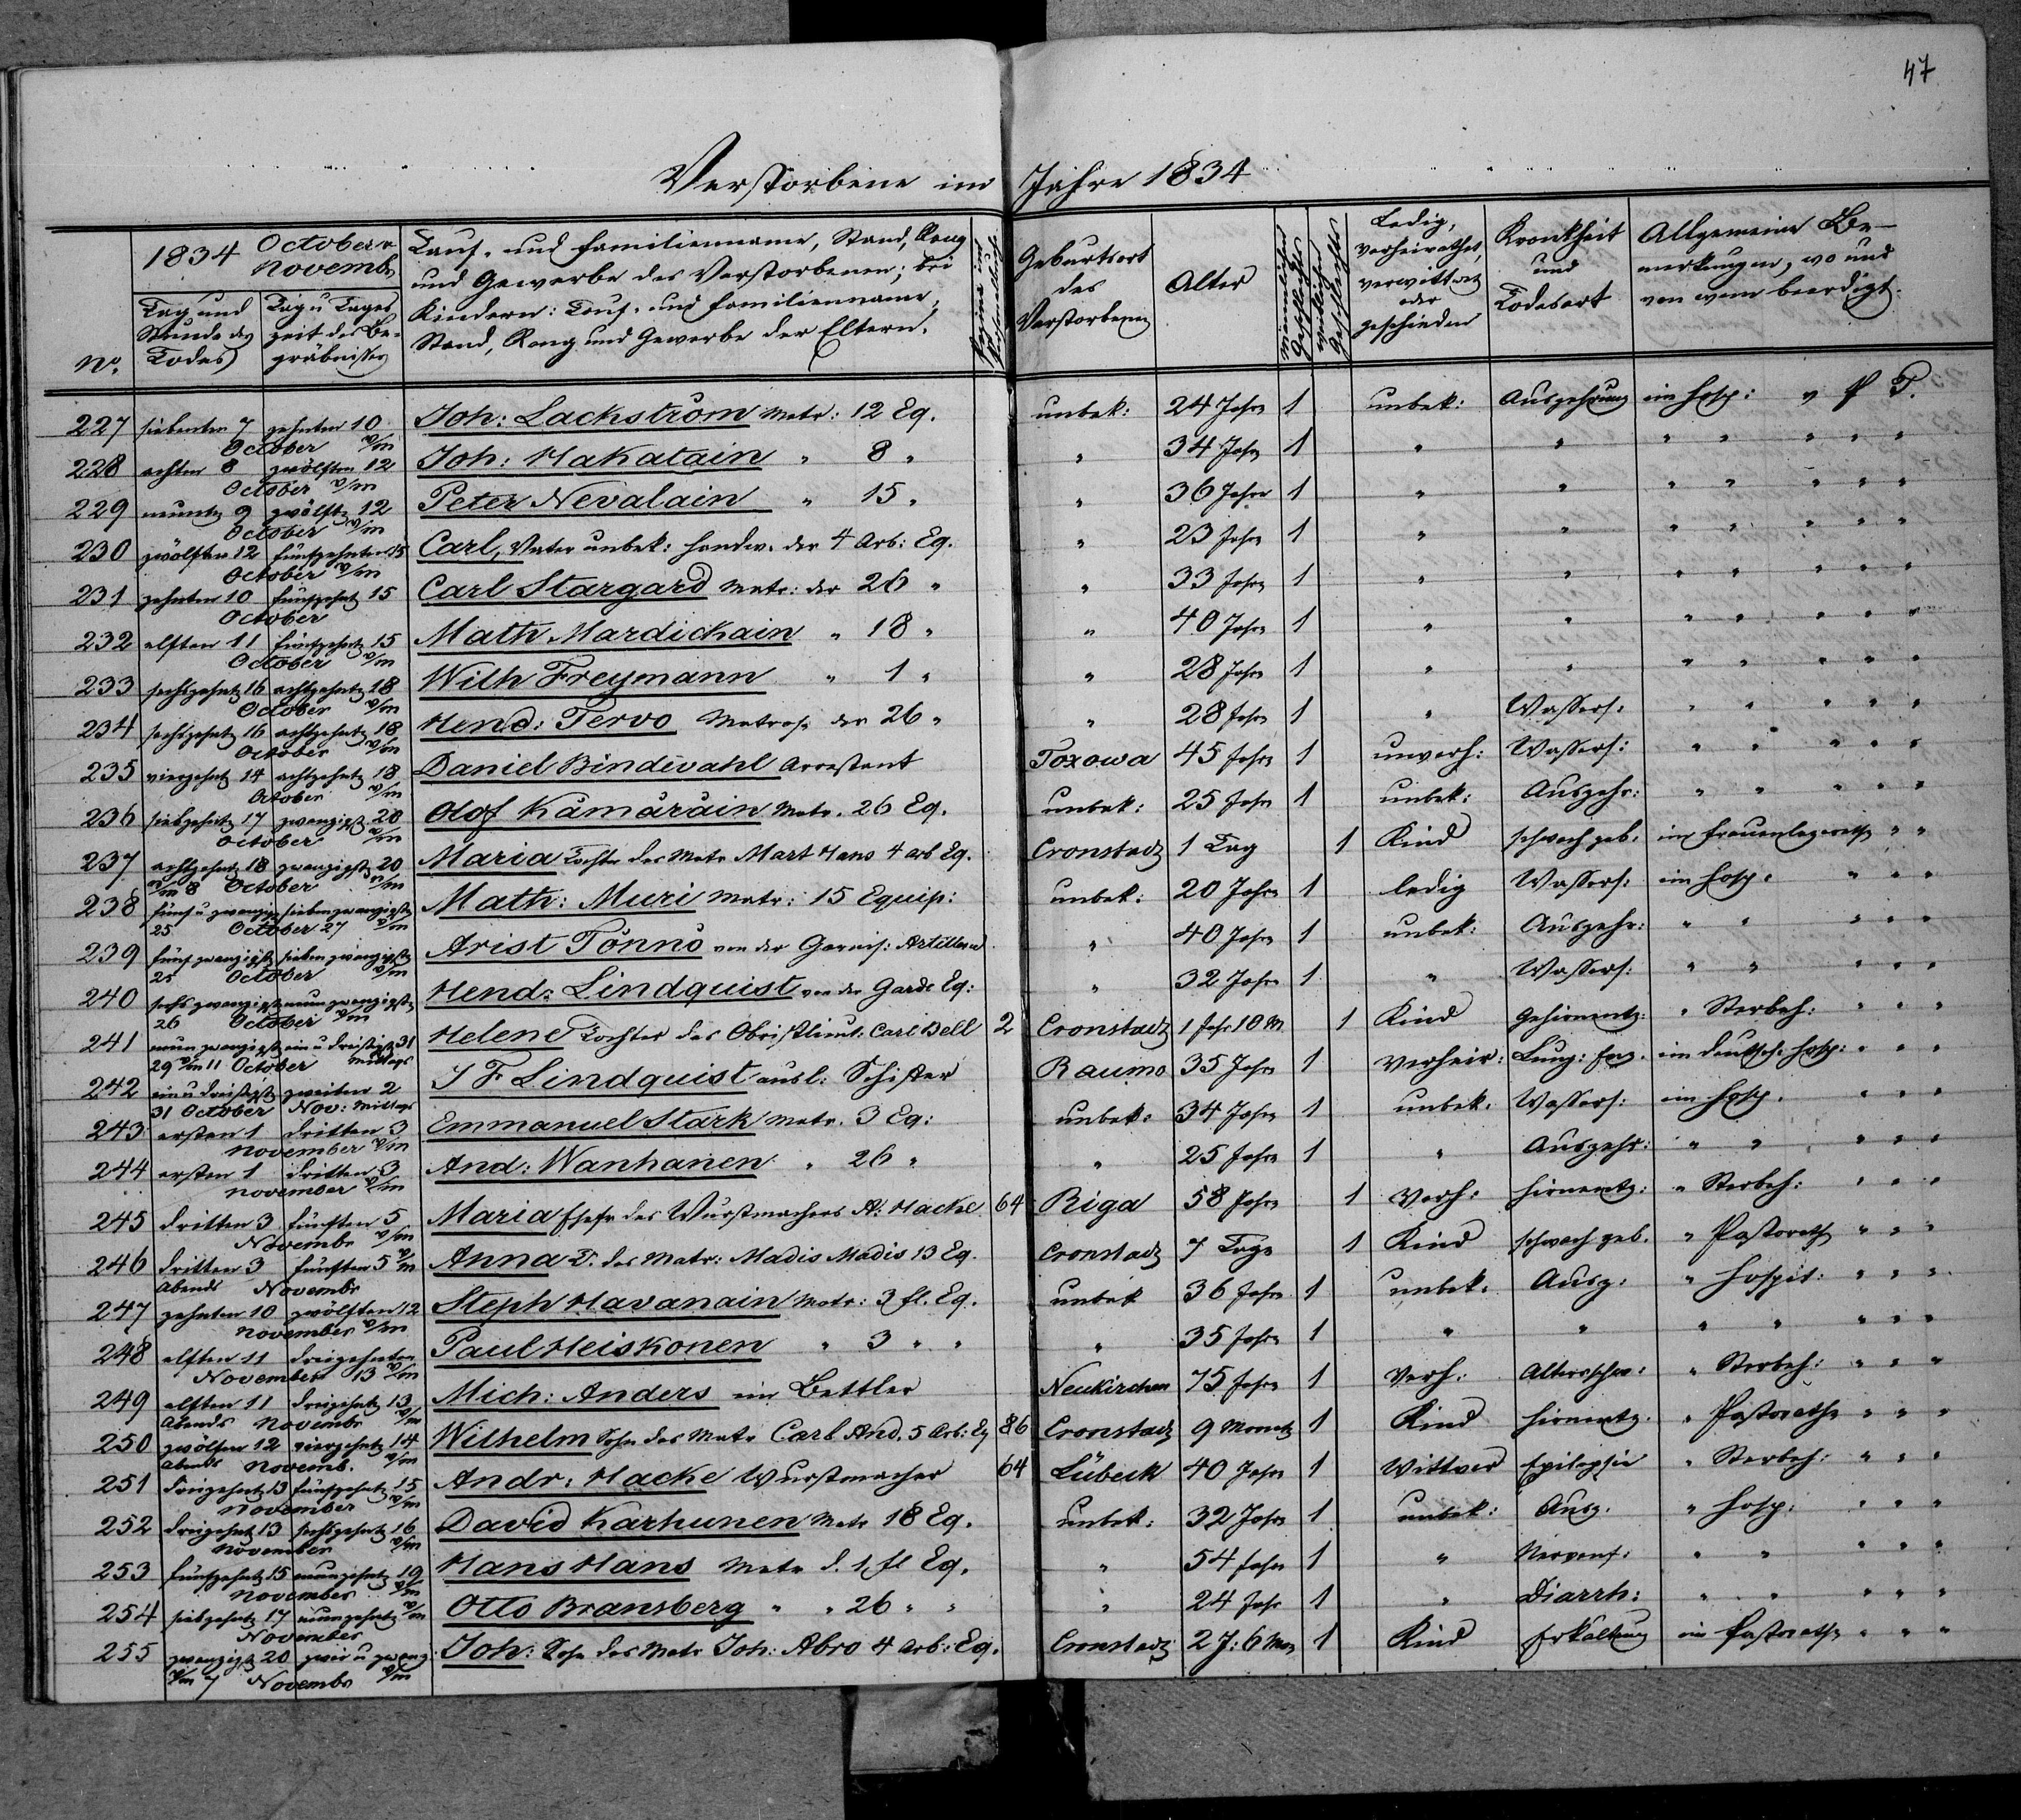 47
Verstorbene im Jahre 1834
No. 1834 October u Novemb. Tag und Stunde des Todes Tag u Tages zeit des Be- gräbnisses Tauf- und Familienname, Stand, Rang und Gewerbe des Verstorbenen; bei Kindern: Tauf- und Familienname, Stand, Rang und Gewerbe der Eltern. Geburtsort des Verstorbenen Alter männlichen Geschlechts weiblichen Geschlechts Ledig, verheirathet, verwittwet oder geschieden Krankheit und Todesart Allgemeine Be- merkungen, wo und von wem beerdigt.
227 siebenten 7 zehnten 10 Joh: Lackström Matr: 12 Eq. unbek: 24 Jahre 1 unbek: Auszehrung im Hosp: v P T.
October v/m
228 achten 8 zwölften 12 Joh: Hakatain " 8 " " 34 Jahre 1 " " " " " " "
October v/m
229 neunten 9 zwölften 12 Peter Nevalain " 15 " " 36 Jahre 1 " " " " " " "
October v/m
230 zwölften 12 fünfzehnten 15 Carl, Vater unbek: Handw. der 4 Arb: Eq. " 23 Jahre 1 " " " " " " "
October v/m
231 zehnten 10 fünfzehnt 15 Carl Stargard Matr: der 26 " " 33 Jahre 1 " " " " " " "
October
232 elften 11 fünfzehnt 15 Math Mardichain " 18 " " 40 Jahre 1 " " " " " " "
October v/m
233 sechszehnt 16 achtzehnt 18 Wilh Freymann " 1 " " 28 Jahre 1 " " " " " " "
October v/m
234 sechszehnt 16 achtzehnt 18 Hend: Tervo Matrose der 26 " " 28 Jahre 1 " Wassers: " " " " "
October v/m
235 vierzehnt 14 achtzehnt 18 Daniel Bindevahl Arrestant Toxowa 45 Jahre 1 unverh: Wassers: " " " " "
October v/m
236 siebzehnt 17 zwanzigst 20 Olof Kämäräin Matr. 26 Eq. unbek: 25 Jahre 1 unbek: Auszehr: " " " " "
October v/m
237 achtzehnt 18 zwanzigst 20 Maria Tochter des Matr Mart Hans 4 arb Eq. Cronstadt 1 Tag 1 Kind schwach geb. im Frauenlazareth " "
v/m 8 October v/m
238 fünf u zwanzig siebenzwanzigst Math: Muri Matr: 15 Equip: unbek: 20 Jahre 1 ledig Wassers: im Hosp: " " "
25 October 27 v/m
239 fünfzwanzigst siebenzwanzigst Arist Tönnö von der Garnis: Artillerie " 40 Jahre 1 unbek: Auszehr: " " " " "
25 October v/m
240 sechszwanzigst neunzwanzigst Hend: Lindquist von der Garde Eq: " 32 Jahre 1 " Wassers: " " " " "
26 October v/m
241 neunzwanzigst ein u dreisigst 31 Helene Tochter des Obristlieut: Carl Bell 2 Cronstadt 1 Jahr 10 M 1 Kind Gehirnentz: " Sterbeh: " " "
29 v/m 11 October Mittags
242 ein u dreisigst zweiten 2 J F Lindquist ausl: Schiffer Raumo 35 Jahre 1 verheir: im deutsch: Hosp: " " "
31 October Nov: Mittags
243 ersten 1 dritten 3 Emmanuel Stark Matr. 3 Eq: unbek: 34 Jahre 1 unbek. Wassers: im Hosp. " " "
November v/m
244 ersten 1 dritten 3 And: Wanhanen " 26 " " 25 Jahre 1 " Auszehr: " " " " "
November v/m
245 dritten 3 fünften 5 Maria Ehefr des Wurstmachers A: Hacke 64 Riga 58 Jahre 1 verh: Hirnentz: " Sterbeh: " " "
Novembr v/m
246 dritten 3 fünften 5 v/m Anna T. des Matr: Madis Madis 13 Eq. Cronstadt 7 Tage 1 Kind schwach geb. " Pastorath " " "
Abends Novembr
247 zehnten 10 zwölften 12 Steph Havanain Matr: 3 fl. Eq. unbek 36 Jahre 1 unbek. Ausz: " Hospit: " " "
November v/m
248 elften 11 dreizehnten Paul Heiskonen " 3 " " " 35 Jahre 1 " " " " " " "
November 13 v/m
249 elften 11 dreizehnt 13 Mich: Anders ein Bettler Neukirchen 75 Jahre 1 verh: Altersschw: " Sterbeh: " " "
Abends Novembr v/m
250 zwölften 12 vierzehnt 14 Wilhelm Sohn des Matr Carl And. 5 Arb: Eq 86 Cronstadt 9 Monat 1 Kind Hirnentz. " Pastorath " " "
Abends Novemb. v/m
251 dreizehnt 13 fünfzehnt 15 Andr: Hacke Wurstmacher 64 Lübeck 40 Jahre 1 Wittwer Epilepsie " Sterbeh: " " "
November v/m
252 dreizehnt 13 sechszehnt 16 David Karhunen Matr 18 Eq. unbek: 32 Jahre 1 unbek: Ausz. " Hosp: " " "
November v/m
253 fünfzehnt 15 neunzehnt 19 Hans Hans Matr d. 1 fl Eq. " 54 Jahre 1 " Nervenf: " " " " "
November v/m
254 siebzehnt 17 neunzehnt v/m Otto Bransberg " " 26 " " " 24 Jahr 1 " Diarrh: " " " " "
November
255 zwanzigst 20 zwei u zwanz Joh: Sohn des Matr Joh: Abro 4 Arb: Eq. Cronstadt 2 J: 6 Mon 1 Kind Erkältung im Pastorath " " "
v/m 7 Novembr v/m